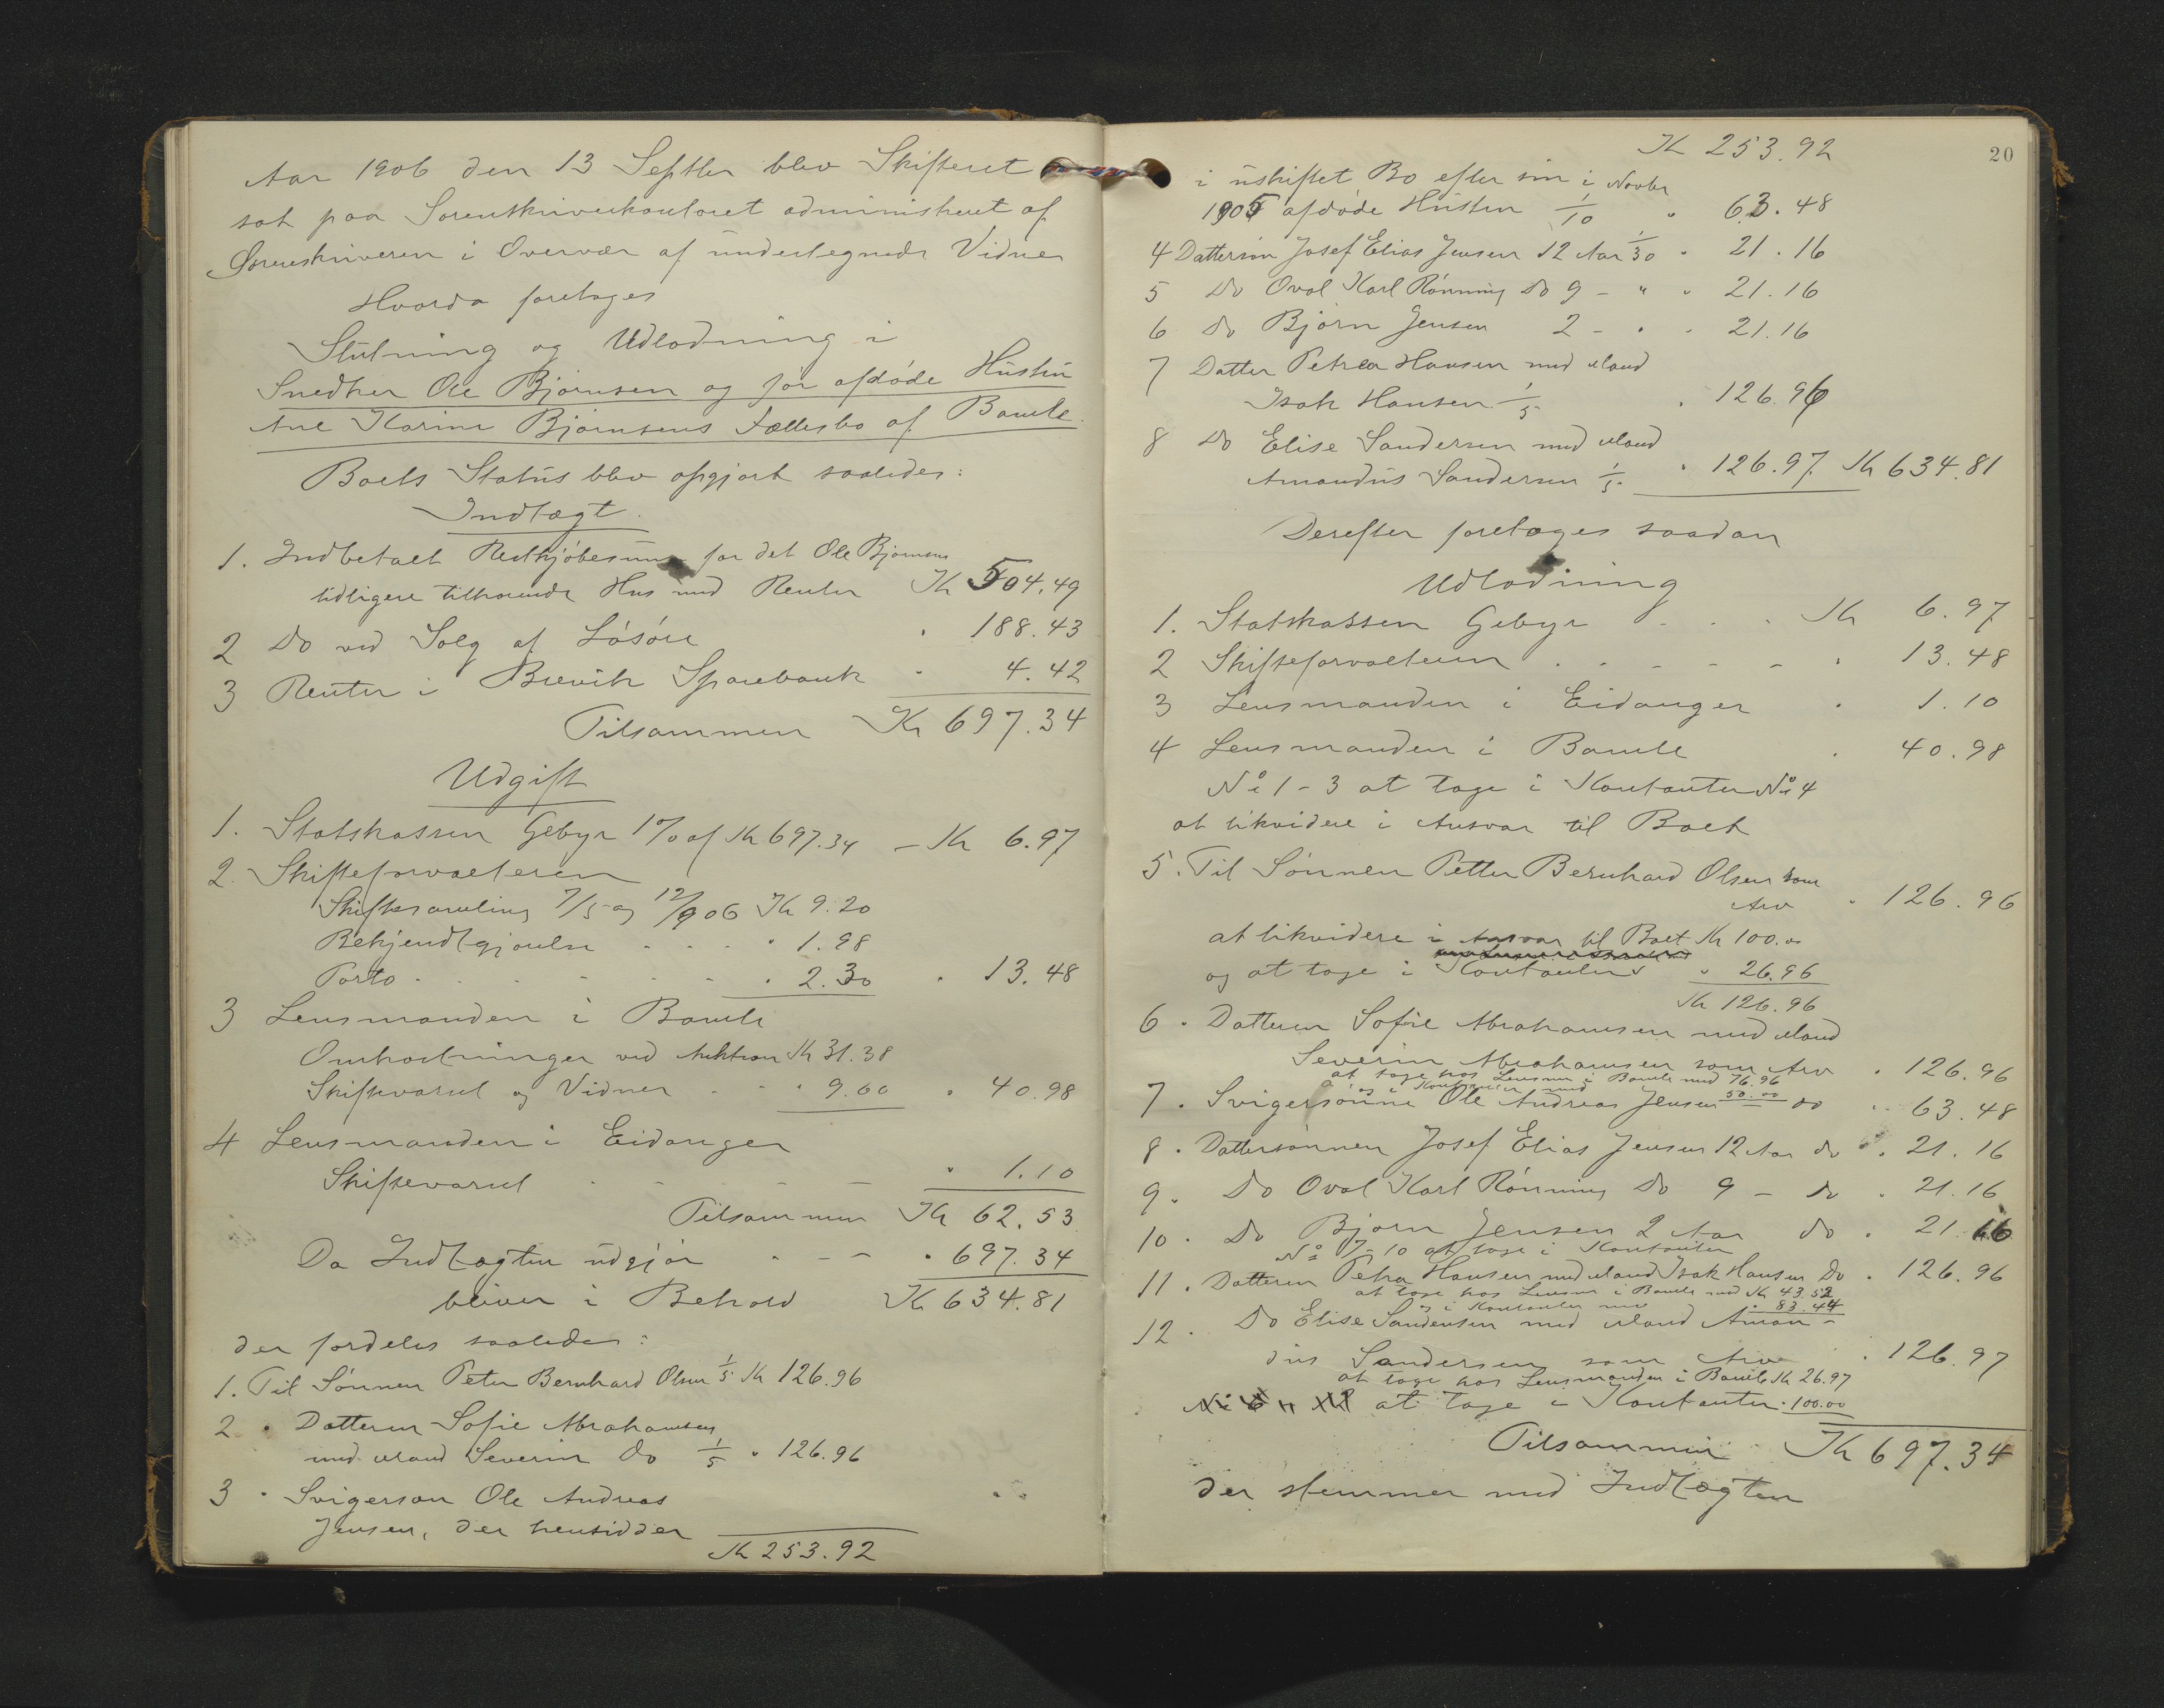 Aar 1906 den 13 Septbr blev Skifteret
sat paa Sorenskriverkontoret administreret af
Sorenskriveren i Overvær af undertegnede Vidner
Hvorda foretages
Slutning og Udlodning i
Snedker Ole Bjørnsen og før afdøde Hustru
Ane Karine Bjørnsens Fællesbo af Bamle.
Boets Status blev opgjort saaledes:
Indtægt.
1. Indbetalt Restkjøbesum for det Ole Bjørnsen
tidligere tilhørende Hus med Renter Kr 504.49
2 Do ved Salg af Løsøre " 188.43
3 Renter i Brevik Sparebank " 4.42
Tilsammen Kr 697.34
Udgift
1. Statskassen Gebyr 1% af Kr 697.34 – Kr 6.97
2. Skifteforvalteren
Skiftesamling 7/5 og 12/9 06 Kr 9.20
Bekjendtgjørelse . . . " 1.98
Porto . . . . . " 2.30 " 13.48
3 Lensmanden i Bamle
Omkostninger ved Auktion Kr 31.38
Skiftevarsel og Vidner . . " 9.60 " 40.98
4 Lensmanden i Eidanger
Skiftevarsel . . – – " 1.10
Tilsammen Kr 62.53
Da Indtægten udgjør . – – " 697.34
bliver i Behold Kr 634.81
der fordeles saaledes:
1. Til Sønnen Peter Bernhard Olsen 1/5 Kr 126.96
2 " Datteren Sofie Abrahamsen
med Mand Severin Do 1/5 " 126.96
3 " Svigersøn Ole Andreas
Jensen, der hensidder
Kr 253.92
20
Kr 253.92
i uskiftet Bo efter sin i Novbr
1905 afdøde Hustru 1/10 " 63.48
4 Dattersøn Josef Elias Jensen 12 Aar 1/30 " 21.16
5 Do Oval Karl Rønning Do 9 – " " 21.16
6 Do Bjørn Jensen 2 – " " 21.16
7 Datter Petrea Hansen med Mand
Isak Hansen 1/5 " 126.96
8 Do Elise Sandersen med Mand
Amandus Sandersen 1/5 " 126.97 Kr 634.81
Derefter foretages saadan
Udlodning
1. Statskassen Gebyr . . . Kr 6.97
2 Skifteforvalteren . . – – – " 13.48
3 Lensmanden i Eidanger " 1.10
4 Lensmanden i Bamle " 40.98
No 1-3 at tage i Kontanter No 4
at likvidere i Ansvar til Boet
5. Til Sønnen Petter Bernhard Olsen som
Arv " 126.96
at likvidere i Ansvar til Boet Kr 100.00
og at tage i Kontanter " 26.96
Kr 126.96
6 . Datteren Sofie Abrahamsen med Mand
Severin Abrahamsen som Arv " 126.96
at tage hos Lensm i Bamle med 76.96
og i Kontanter med 50.00
7 . Svigersønne Ole Andreas Jensen Do " 63.48
8 . Dattersønnen Josef Elias Jensen 12 Aar do " 21.16
9 . Do Oval Karl Rønning Do 9 – do " 21.16
10 . Do Bjørn Jensen 2 Aar do " 21.16
No 7-10 at tage i Kontanter
11 . Datteren Petra Hansen med Mand Isak Hansen Do " 126.96
at tage hos Lensm i Bamle med Kr 43.52
og i Kontanter med " 83.44
12 . Do Elise Sandersen med Mand Aman-
dus Sandersen som Arv " 126.97
at tage hos Lensmanden i Bamle Kr 26.97
at tage i Kontanter " 100.00
Tilsammen Kr 697.34
der stemmer med Indtægten